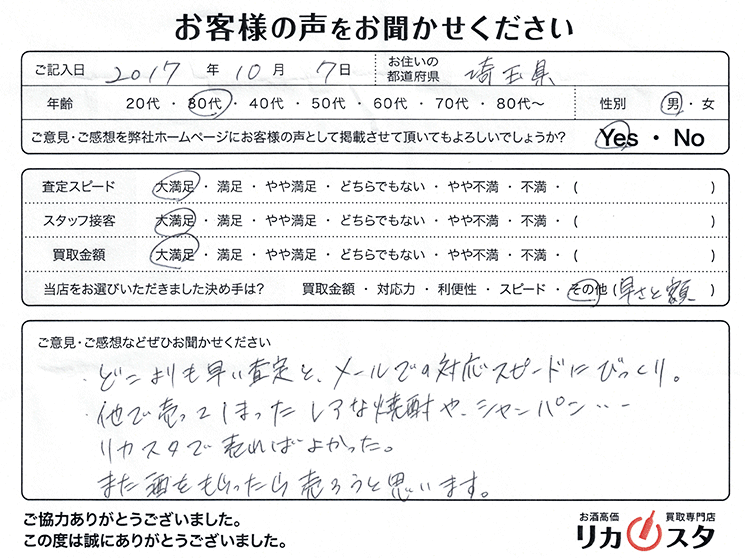 お客様の声をお聞かせください
ご記入日 2017 年 10 月 7 日 お住いの都道府県 埼玉県
年齢 20代 ・ 30代 ・ 40代 ・ 50代 ・ 60代 ・ 70代 ・ 80代〜 性別 男 ・ 女
ご意見・ご感想を弊社ホームページにお客様の声として掲載させて頂いてもよろしいでしょうか? Yes ・ No
査定スピード 大満足 ・ 満足 ・ やや満足 ・ どちらでもない ・ やや不満 ・ 不満 ・ ( )
スタッフ接客 大満足 ・ 満足 ・ やや満足 ・ どちらでもない ・ やや不満 ・ 不満 ・ ( )
買取金額 大満足 ・ 満足 ・ やや満足 ・ どちらでもない ・ やや不満 ・ 不満 ・ ( )
当店をお選びいただきました決め手は? 買取金額 ・ 対応力 ・ 利便性 ・ スピード ・ その他 (早さと額)
ご意見・ご感想などぜひお聞かせください
・どこよりも早い査定と、メールでの対応スピードにびっくり。
・他で売ってしまったレアな焼酎や、シャンパン・・・
リカスタで売ればよかった。
また酒をもらったら売ろうと思います。
ご協力ありがとうございました。
この度は誠にありがとうございました。
お酒高価 買取専門店
リカスタ